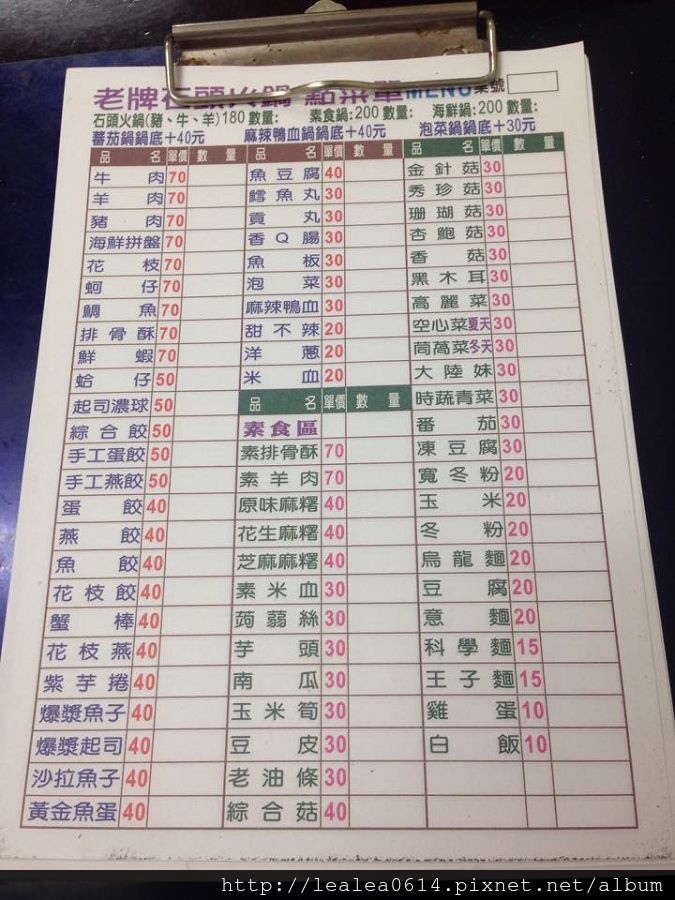 老牌石頭火鍋 點菜單MENU桌號
石頭火鍋(豬、牛、羊)180數量: 素食鍋:200數量: 海鮮鍋:200數量:
蕃茄鍋鍋底+40元 麻辣鴨血鍋鍋底+40元 泡菜鍋鍋底+30元
品名 單價 數量
牛肉 70
羊肉 70
豬肉 70
海鮮拼盤 70
花枝 70
蚵仔 70
鯛魚 70
排骨酥 70
鮮蝦 70
蛤仔 50
起司濃球 50
綜合餃 50
手工蛋餃 50
手工燕餃 50
蛋餃 40
燕餃 40
魚餃 40
花枝餃 40
蟹棒 40
花枝燕 40
紫芋捲 40
爆漿魚子 40
爆漿起司 40
沙拉魚子 40
黃金魚蛋 40
品名 單價 數量
魚豆腐 40
鱈魚丸 30
貢丸 30
香Q腸 30
魚板 30
泡菜 30
麻辣鴨血 30
甜不辣 20
洋蔥 20
米血 20
品名 單價 數量
素食區
素排骨酥 70
素羊肉 70
原味麻糬 40
花生麻糬 40
芝麻麻糬 40
素米血 30
蒟蒻絲 30
芋頭 30
南瓜 30
玉米筍 30
豆皮 30
老油條 30
綜合菇 40
品名 單價 數量
金針菇 30
秀珍菇 30
珊瑚菇 30
杏鮑菇 30
香菇 30
黑木耳 30
高麗菜 30
空心菜夏天 30
茼萵菜冬天 30
大陸妹 30
時蔬青菜 30
番茄 30
凍豆腐 30
寬冬粉 20
玉米 20
冬粉 20
烏龍麵 20
豆腐 20
意麵 20
科學麵 15
王子麵 15
雞蛋 10
白飯 10
http://lealea0614.pixnet.net/album